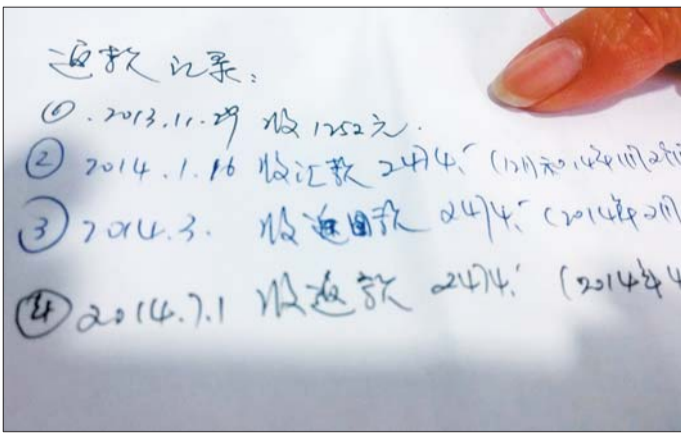 返款记录:
①.2013.11.29 收1252元.
② 2014.1.16 收汇款 2474.- (12月和14年1月2
③ 2014.3. 收返回款 2474.- (2014年2月
④ 2014.7.1 收返款 2474.- (2014年4